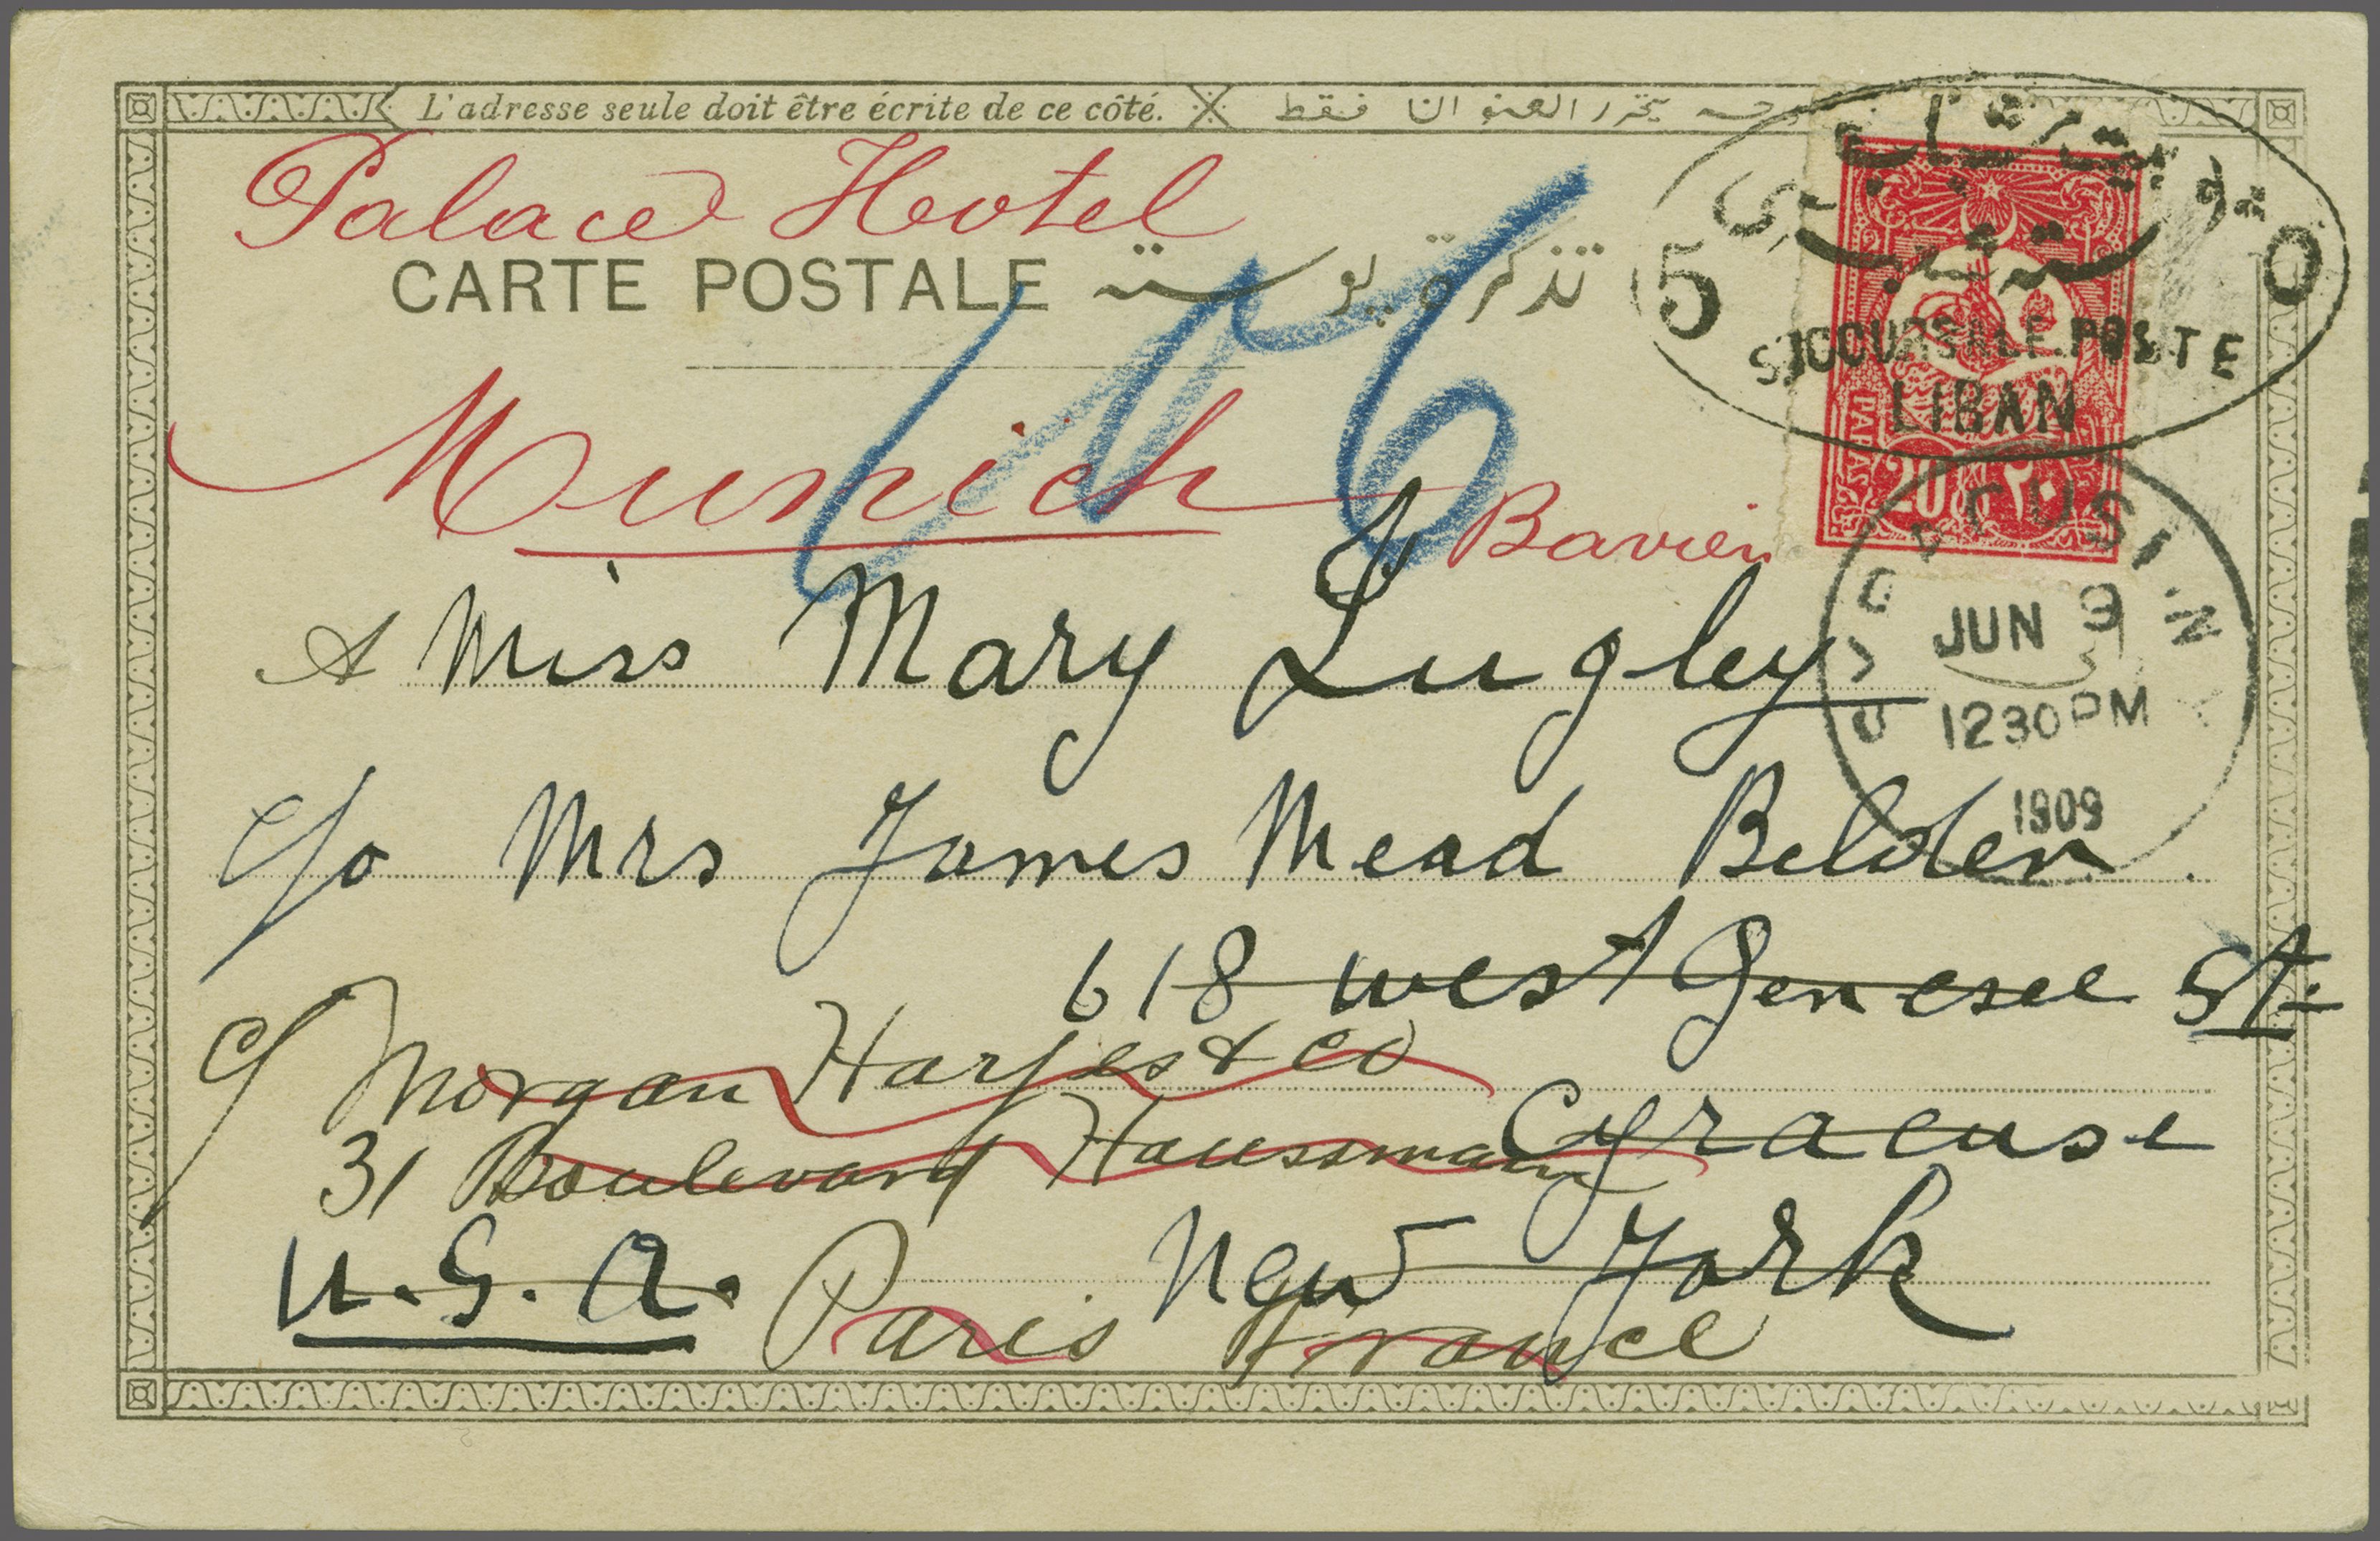 L'adresse seule doit être écrite de ce côté. يحرر العنوان فقط
Palace Hotel
CARTE POSTALE تذكرة پوسته
106
Munich
5 0
SUCCURSALE POSTE
LIBAN
20 ٢٠
JUN 9
1230 PM
1909
A Miss Mary Lugley
c/o Mrs James Mead Belden
618 West Genesee St.
c/ Morgan Harjes & Co
Cyracuse
31 Boulevard Haussmann
U.S.A. New York
Paris France